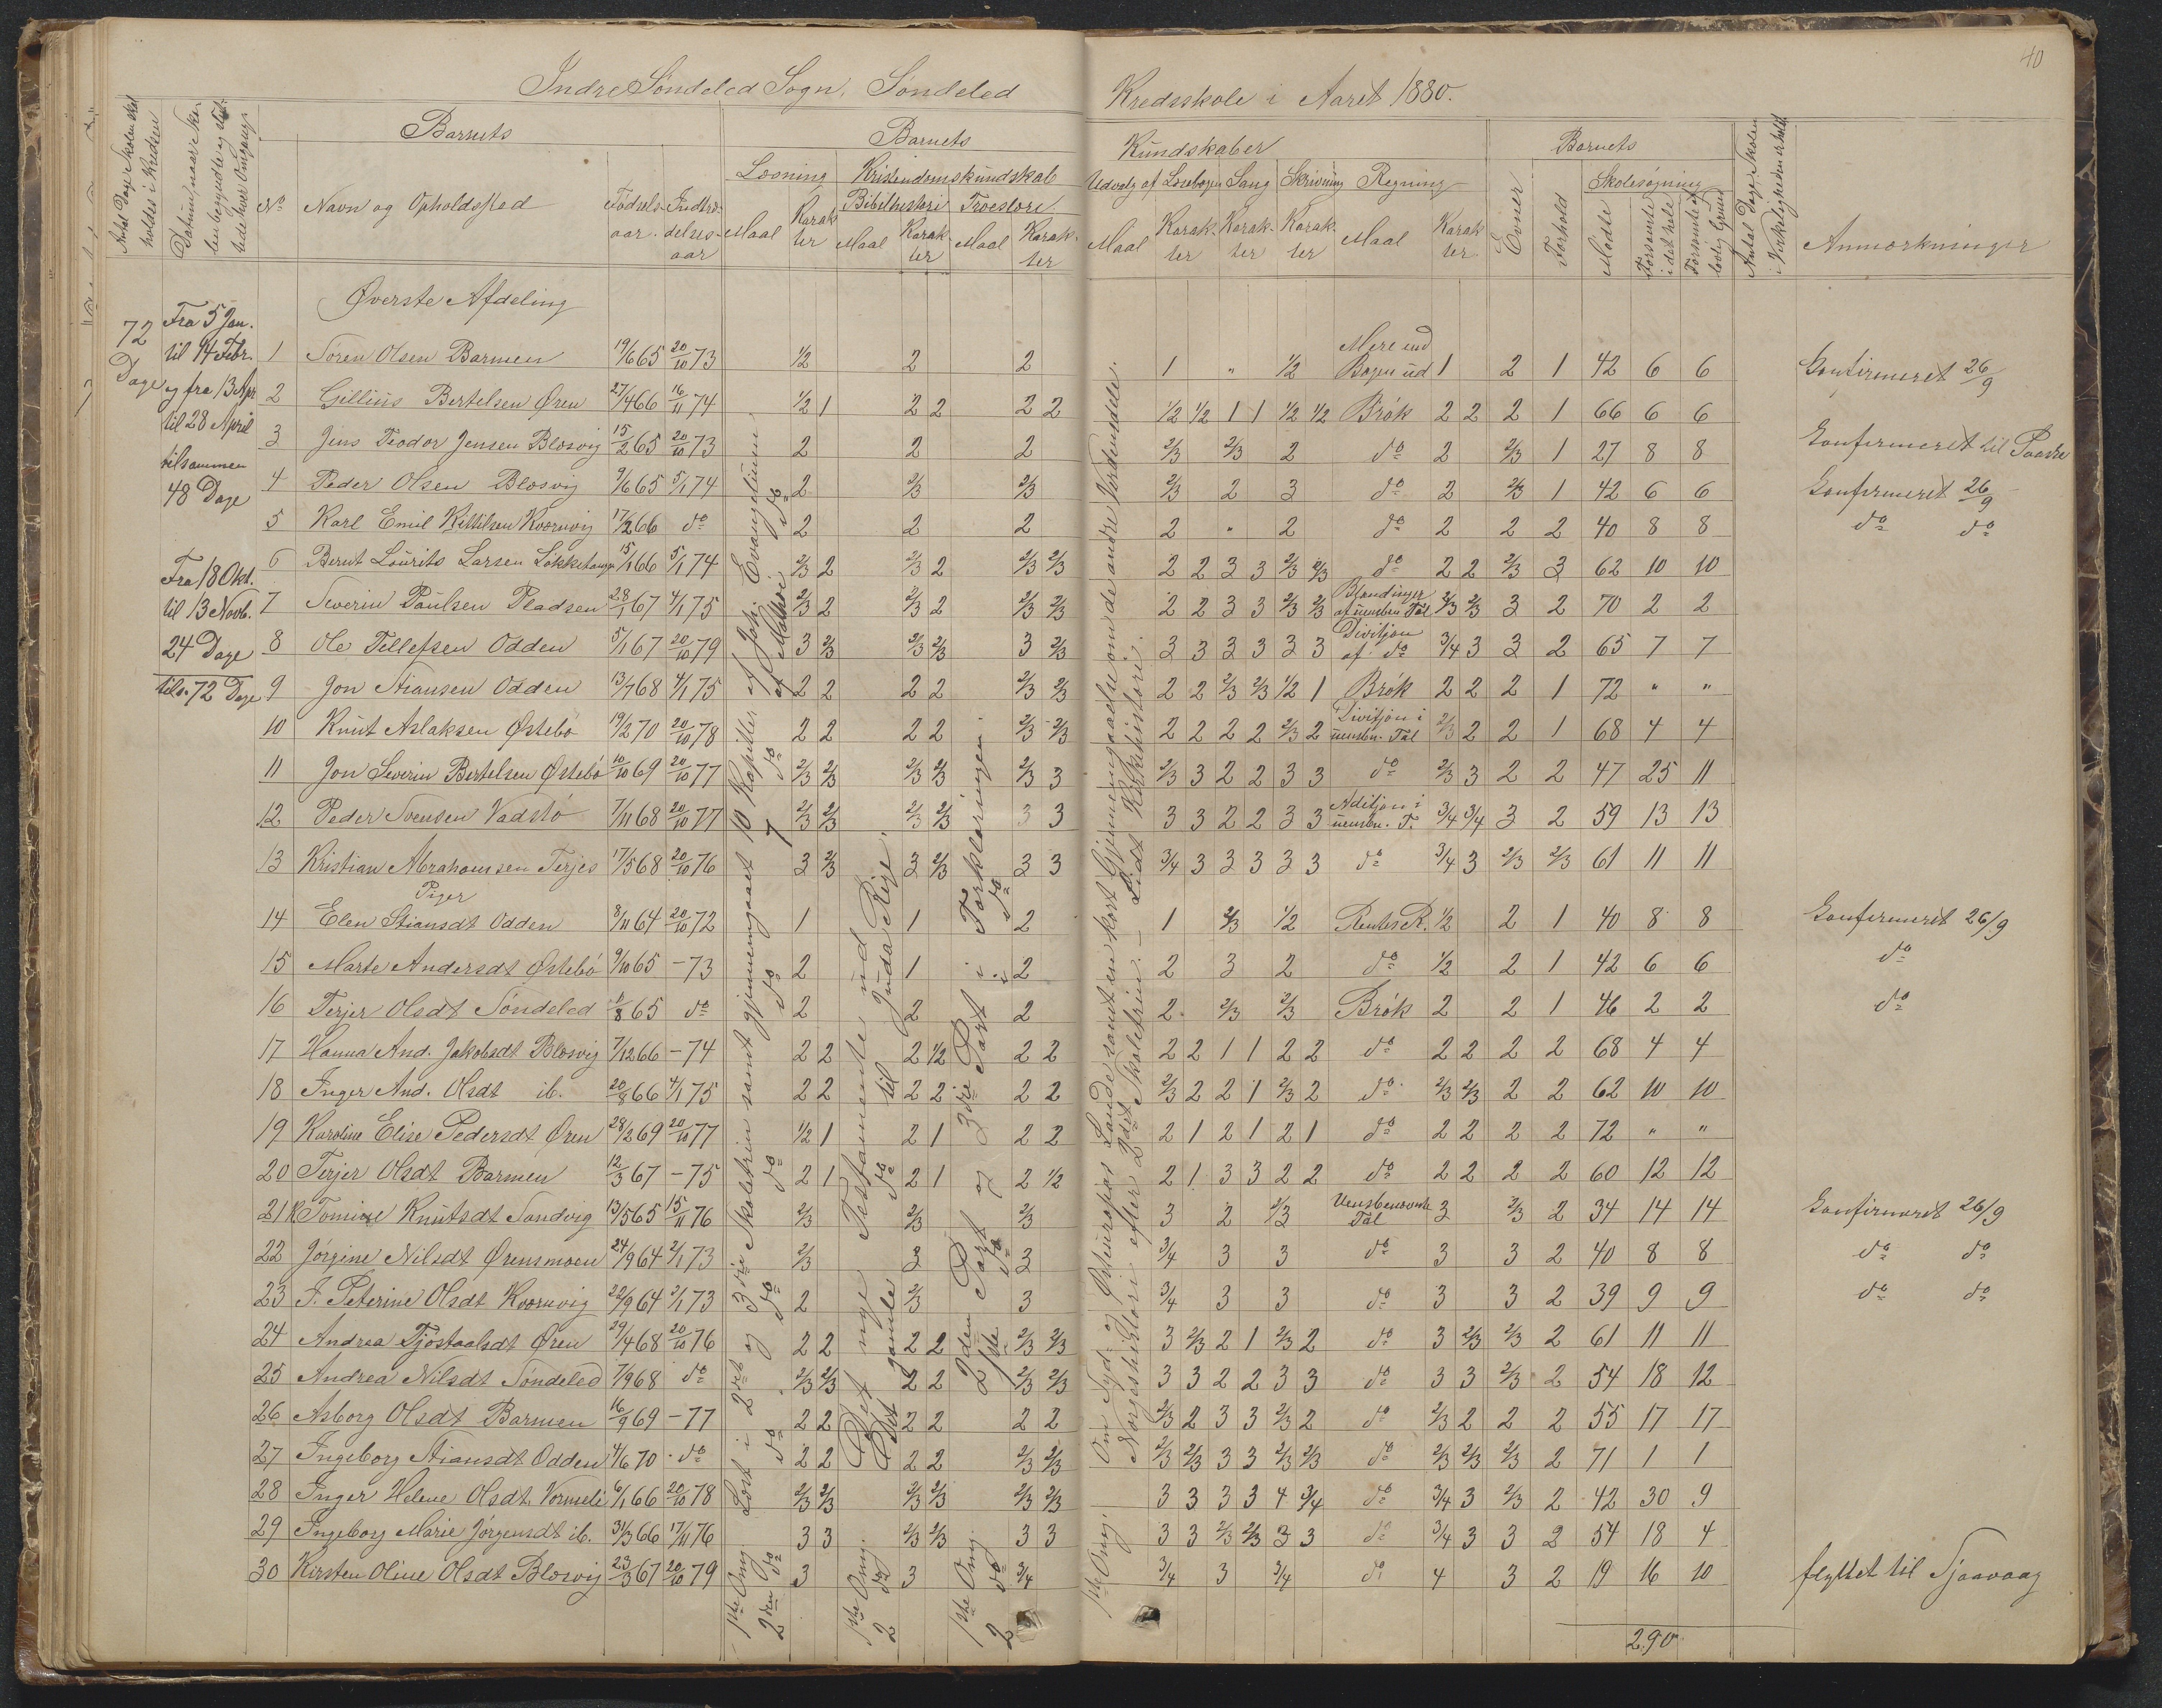 40
Indre Søndeled Sogn, Søndeled Kredsskole i Aaret 1880.
Antal Dage Skolen skal holdes i Kredsen
Datum, naar Skolen begyndte og sluttede hver Omgang
No
Barnets
Navn og Opholdssted
Fødselsaar.
Indtrædelsesaar
Barnets Kundskaber
Læsning
Maal
Karakter
Kristendomskundskab
Bibelhistori
Maal
Karakter
Troeslære
Maal
Karakter
Udvalg af Læsebogen
Maal
Karakter
Sang
Karakter
Skrivning
Karakter
Regning
Maal
Karakter
Barnets
Evner
Forhold
Skolesøgning
Mødte
Forsømte i det hele
Forsømte af lovlig Grund
Antal Dage Skolen i Virkeligheden er holdt
Anmærkninger
72 Dage
Fra 5 Jan.
til 14 Febr.
og fra 13 Apr
til 28 April
tilsammen
48 Dage
Fra 18 Okt.
til 13 Novb.
24 Dage
tils. 72 Dage
Øverste Afdeling
1 Søren Olsen Barmen 19/6 65 20/10 73 1/2 2 2 1 " 1/2 Mere end Bogen ud 1 2 1 42 6 6 Konfirmeret 26/9
2 Gillius Bertelsen Øren 27/4 66 16/11 74 1/2 1 2 2 2 2 1/2 1/2 1 1 1/2 1/2 Brøk 2 2 2 1 66 6 6
3 Jens Teodor Jensen Blosvig 15/2 65 20/10 73 2 2 2 2/3 2/3 2 do 2 2/3 1 27 8 8 Konfirmeret til Paaske
4 Peder Olsen Blosvig 9/6 65 5/1 74 2 2/3 2/3 2/3 2 3 do 2 2/3 1 42 6 6 Konfirmeret 26/9
5 Karl Emil Kittilsen Kvernvig 17/2 66 do 2 2 2 2 " 2 do 2 2 2 40 8 8 do do
6 Bernt Lourits Larsen Lokketangen 15/1 66 5/1 74 2/3 2 2/3 2 2/3 2/3 2 2 3 3 2/3 2/3 do 2 2 2/3 3 62 10 10
7 Severin Paulsen Pladsen 28/1 67 4/1 75 2/3 2 2/3 2 2/3 2/3 2 2 3 3 2/3 2/3 Blandinger af uensben. Tal 2/3 2/3 3 2 70 2 2
8 Ole Tellefsen Odden 5/1 67 20/10 79 3 2/3 2/3 2/3 3 2/3 3 3 3 3 3 3 Divisjon af do 3/4 3 3 2 65 7 7
9 Jon Stiansen Odden 13/7 68 4/1 75 2 2 2 2 2/3 2/3 2 2 2/3 2/3 1/2 1 Brøk 2 2 2 1 72 " "
10 Knut Aslaksen Østebø 19/2 70 20/10 78 2 2 2 2 2/3 2/3 2 2 2 2 2/3 2 Divisjon i uensbn. Tal 2/3 2 2 1 68 4 4
11 Jon Severin Bertelsen Østebø 10/10 69 20/10 77 2/3 2/3 2/3 2/3 2/3 3 2/3 3 2 2 3 3 do 2/3 3 2 2 47 25 11
12 Peder Svensen Vadstø 7/11 68 20/10 77 2/3 2/3 2/3 2/3 3 3 3 3 2 2 3 3 Aditjon i uensbn. T. 3/4 3/4 3 2 59 13 13
13 Kristian Abrahamsen Terjes 17/5 68 20/10 76 3 2/3 3 2/3 3 3 3/4 3 3 3 3 3 do 3/4 3 2/3 2/3 61 11 11
Piger
14 Elen Stiansdt Odden 8/11 64 20/10 72 1 1 2 1 2/3 1/2 Rentes R. 1/2 2 1 40 8 8 Konfirmeret 26/9
15 Marte Andersdt Østebø 9/10 65 - 73 2 1 2 2 3 2 do 1/2 2 1 42 6 6 do
16 Terjer Olsdt Søndeled 1/8 65 do 2 2 2 2 2/3 2/3 Brøk 2 2 1 46 2 2 do
17 Hanna And. Jakobsdt Blosvig 7/12 66 - 74 2 2 2 1/2 2 2 2 2 1 1 2 2 do 2 2 2 2 68 4 4
18 Inger And. Olsdt ib. 20/8 66 4/1 75 2 2 2 2 2 2 2/3 2 2 1 2/3 2 do 2/3 2/3 2 2 62 10 10
19 Karoline Elise Pedersdt Øren 28/2 69 20/10 77 1/2 1 2 1 2 2 2 1 2 1 2 1 do 2 2 2 2 72 " "
20 Terjer Olsdt Barmen 12/3 67 - 75 2 1 2 1 2 1/2 2 1 3 3 2 2 do 2 2 2 2 60 12 12
21 Tomine Knutsdt Sandvig 13/5 65 15/11 76 2/3 2/3 2/3 3 2 2/3 Uensbenævnte Tal 3 2/3 2 34 14 14 Konfirmeret 26/9
22 Jørgine Nilsdt Ørensmoen 24/9 64 2/1 73 2/3 3 3 3/4 3 3 do 3 3 2 40 8 8 do do
23 J. Peterine Olsdt Kvernvig 22/9 64 2/1 73 2 2/3 3 3/4 3 3 do 3 3 2 39 9 9 do do
24 Andrea Tjøstaalsdt Øren 29/4 68 20/10 76 2 2 2 2 2/3 2/3 3 2/3 2 1 2/3 2 do 3 2/3 2/3 2 61 11 11
25 Andrea Nilsdt Søndeled 7/9 68 do 2/3 2/3 2 2 2/3 2/3 3 3 2 2 3 3 do 3 3 2/3 2 54 18 12
26 Asborg Olsdt Barmen 16/9 69 - 77 2 2 2 2 2 2 2/3 2 3 3 2/3 2 do 2/3 2 2 2 55 17 17
27 Ingeborg Stiansdt Odden 4/6 70 do 2 2 2 2 2/3 2/3 2/3 2/3 3 3 2/3 2/3 do 2/3 2/3 2/3 2 71 1 1
28 Inger Helene Olsdt. Vormeli 6/1 66 20/10 78 2/3 2/3 2/3 2/3 2/3 2/3 3 3 3 3 4 3/4 do 3/4 3 2/3 2 42 30 9
29 Ingeborg Marie Jørgensdt ib. 31/3 66 17/11 76 3 3 2/3 2/3 3 3 3 3 2/3 2/3 3 3 do 3/4 3 3 2 54 18 4
30 Kirsten Oline Olsdt Blosvig 23/3 67 20/10 79 3 3 3/4 3/4 3 3/4 do 4 3 2 19 16 10 flyttet til Sjaavaag
290
1ste Omg. Læst i 2det og 3die Skoletrin samt gjennemgaaet 10 Kapitler af Joh. Evangelium
2den do do do do do 7 do af Mathæi do
1ste Omg. Det nye Testamente ud
2 do Det gamle do til Juda Rige.
1ste Omg. 2den Part og 3die Part i Forklaringen
2 do 1ste do i do
1ste Omg. Om Syd- og Østeuropas Lande samt en kort Gjennemgaaelse om de andre Verdensdele.
Norgeshistori efter 2det Skoletrin. - Lidt Kirkehistori.